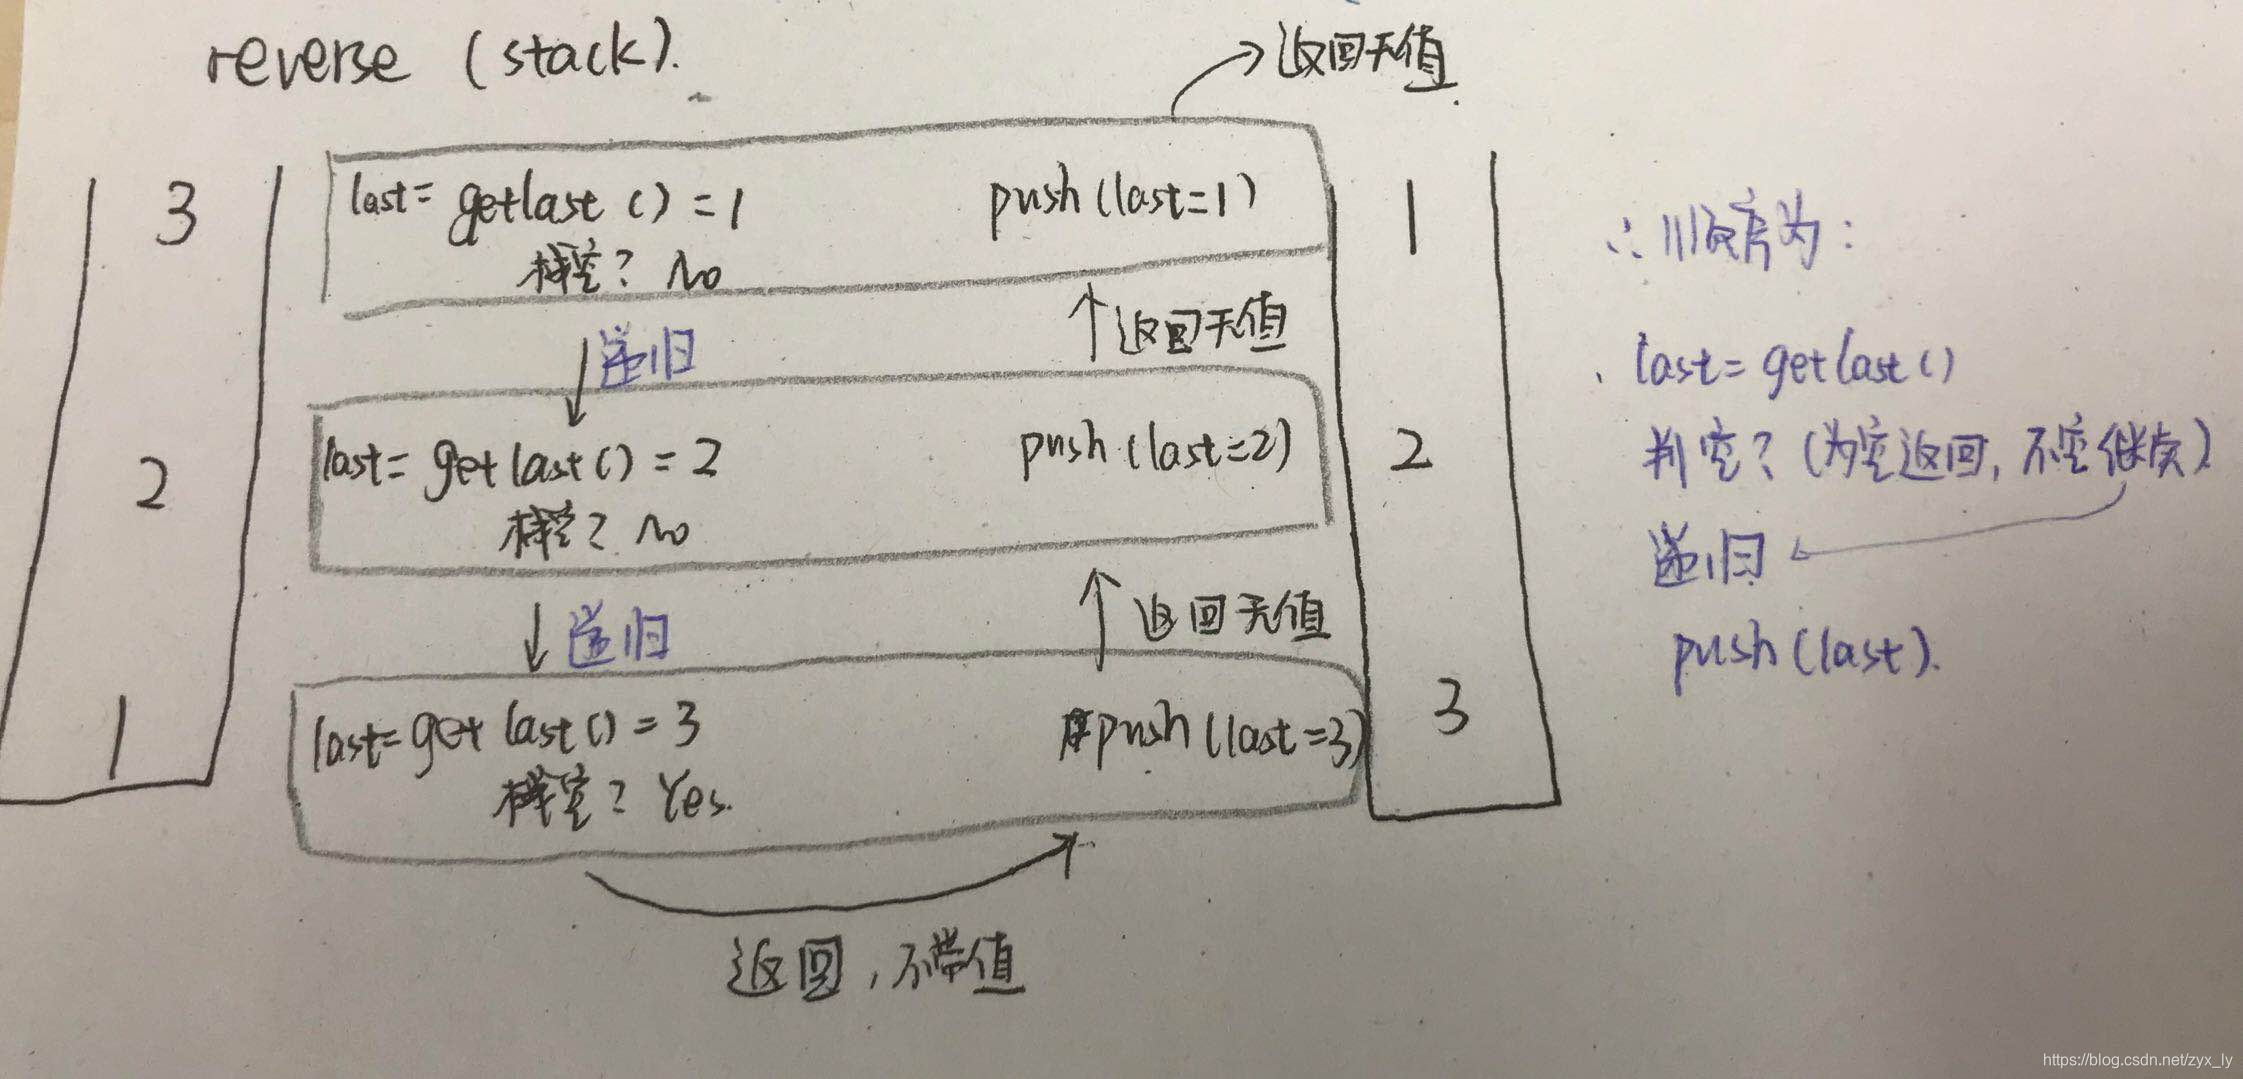 reverse (stack).
返回无值.
3
last= getlast () = 1
push (last=1)
1
栈空? No
递归
返回无值
2
last= getlast () = 2
push (last=2)
2
栈空? No
递归
返回无值
1
last= getlast () = 3
push (last=3)
3
栈空? Yes.
返回, 不带值
∴ 顺序为:
last= getlast ()
判空? (为空返回, 不空继续)
递归
push (last).
https://blog.csdn.net/zyx_ly